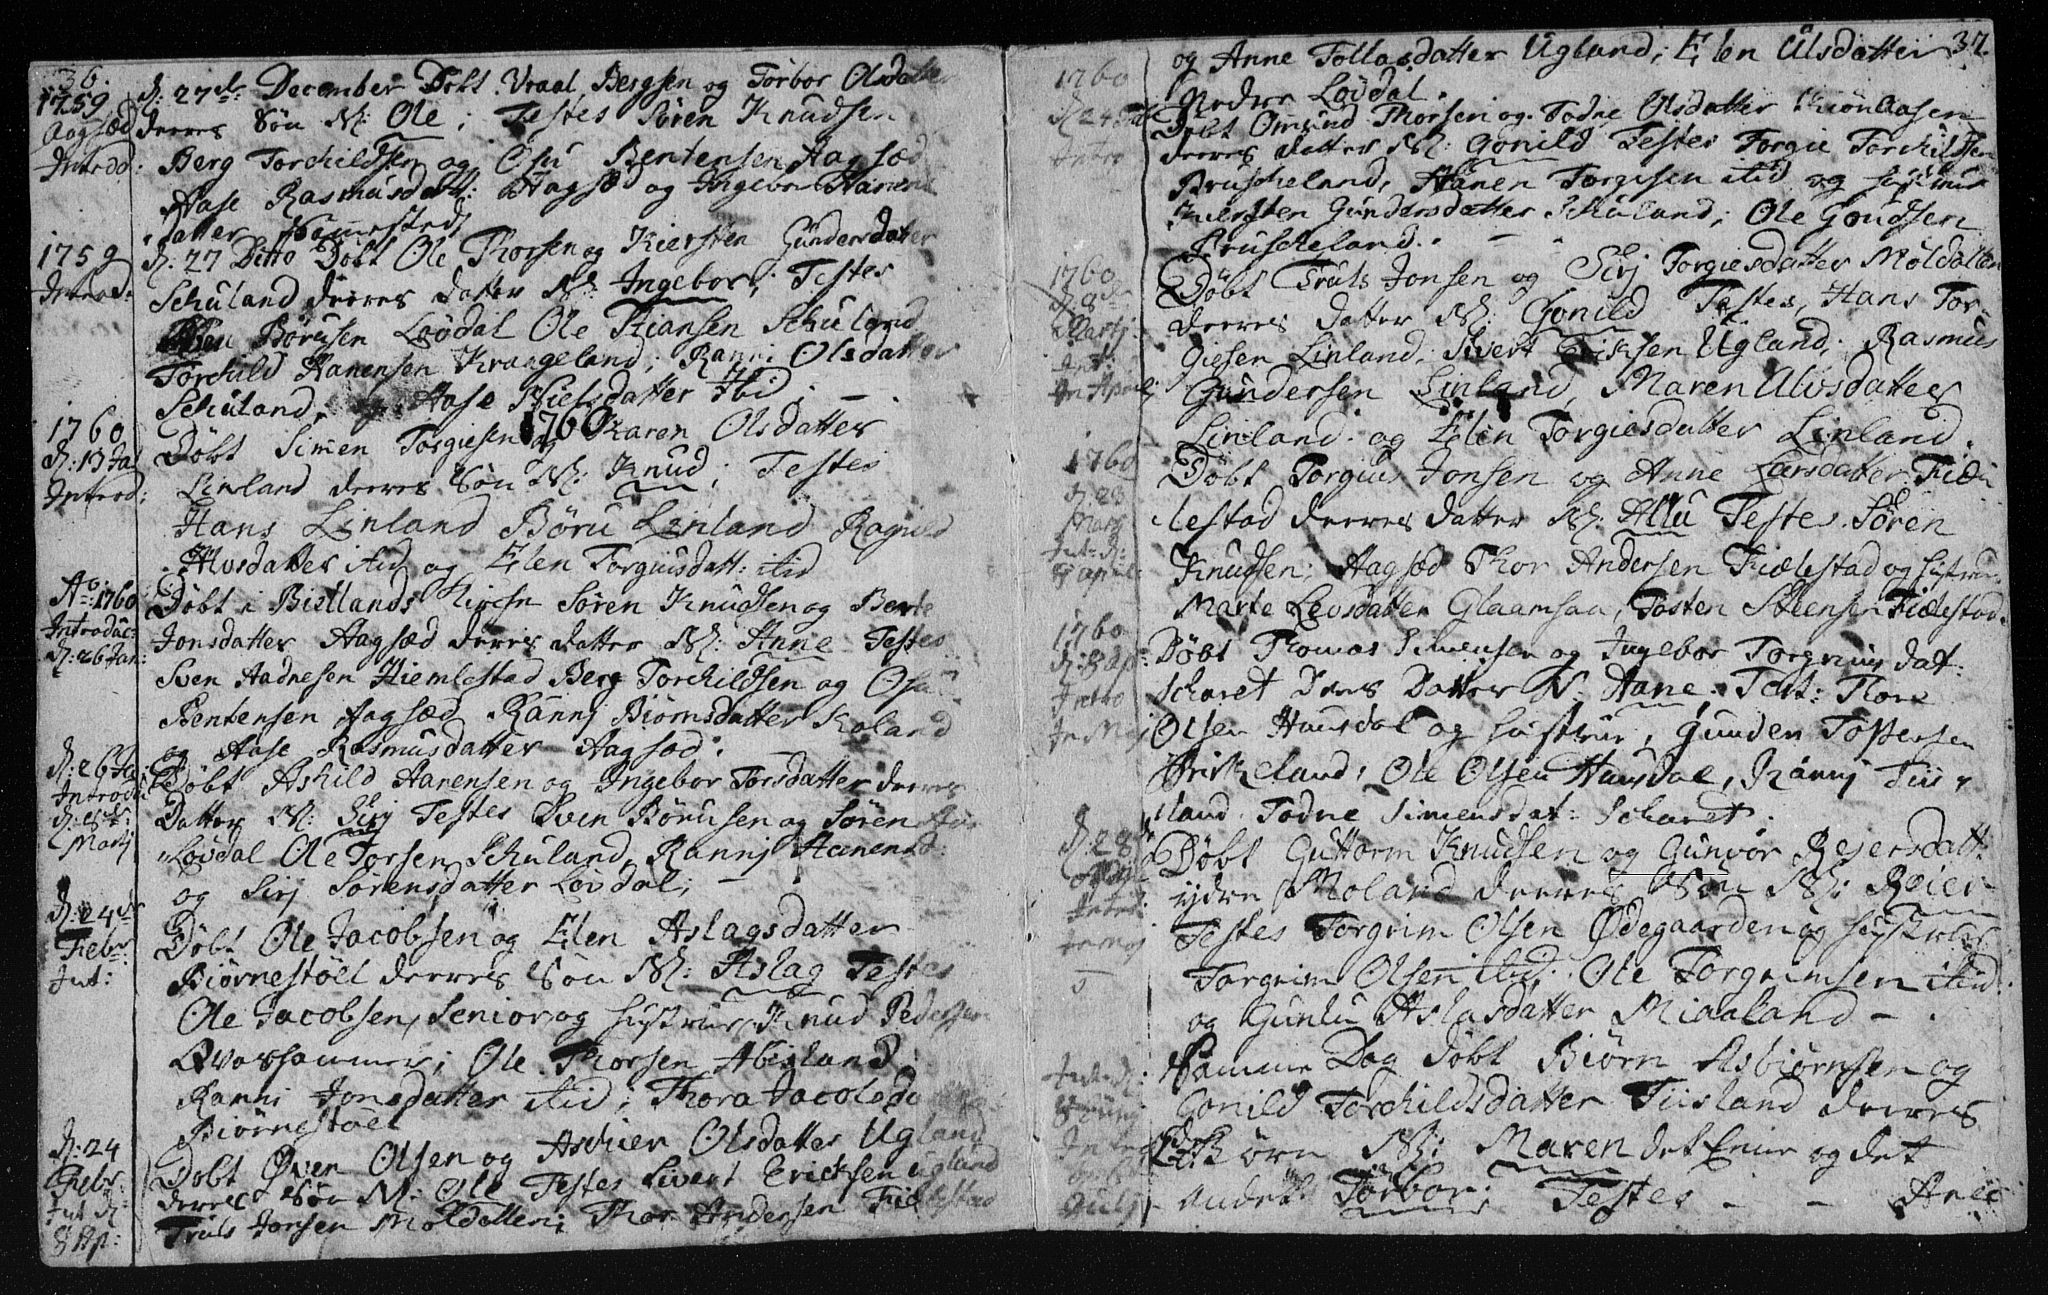 36.
1759
Aagsæd
Introd:
d: 27de December Döbt Vraal Bergsen og Torbor Olsdatter
deres Sön N: Ole; Testes Sören Knudsen
Berg Torchildsen og Osu Bentensen Aagsæd
Aase Rasmusdatt: Aagsæd og Ingebor Hanens
datter
1759
Introd:
d. 27 Ditto Döbt Ole Thorsen og Kiersten Gundersdatter
Schuland deres datter N: Ingebor; Testes
Sven Börusen Lövdal Ole Schuland
Torchild Hanensen Krangeland; Ranni Olsdatter
Schuland, og Aase Nielsdatter Ibid. —
1760
1760
d: 13 Jan
Introd:
Döbt Simen Torgiesen og Karen Olsdatter
Linland deres Sön N: Knud; Testes
Hans Linland Böru Linland Ragnild
Alvsdatter itid og Elen Torguusdatt: itid
Ao: 1760
Introduc:
d: 26 Jan:
Döbt i Biellands Kirche Sören Knudsen og Berte
Jonsdatter Aagsæd deres datter N: Anne Testes
Sven Aadnesen Hiemlestad Berg Torchildsen og Osu
Bentensen Aagsæd Ranni Biörnsdatter Roland
og Aase Rasmusdatter Aagsæd. —
d: 26 Ja
Introdu
Martj
Döbt Askild Aanensen og Ingebor Torsdatter deres
Datter N: Sirj Testes Sven Börusen og Sören
Lövdal Ole Torsen Schuland, Rannj Hanensd:
og Sirj Sörensdatter Lövdal; —
d: 24de
Febr:
Int:
Döbt Ole Jacobsen og Elen Aslagsdatter
Biörnestöel deres Sön N: Aslag Testes
Ole Jacobsen Senior og hustrue, Knud Pedersen
Qvarshammer; Ole Thorsen Abisland
Ranni Jonsdatter itid; Thora Jacobsd
Biörnestöel
d: 24
Febr:
Int d:
8 Ap:
Döbt Öven Olsen og Aschier Olsdatter Ugland
deres Sön N: Ole Testes Sivert Ericksen Ugland
Truls Jonsen Moldollen; Thor Andersen Fiælestad
37.
og Anne Tollagsdatter Ugland; Elen Ulsdatter
Nedre Lövdal.
1760
d 24
Intro
Döbt Omund Thorsen og Todne Olsdatter
deres datter N: Gonild Testes Torgie Torchildsen
Bruscheland, Hanen Torgiesen itid og hustrue
Kiersten Gundersdatter Schuland; Ole Goudsen
Bruscheland. —
1760
d 9de
Martj
Int:
In April:
Döbt Truls Jonsen og Sirj Torgiesdatter Moldollen
deres datter N: Gonild Testes, Hans Tor-
giesen Linland, Sivert Ericksen Ugland; Rasmus
Gundersen Linland, Maren Alvsdatter
Linland. og Elen Torgiesdatter Linland.
1760
d. 23
Mart
Int: d:
april:
Döbt Torgius Jonsen og Anne Larsdatter Fiæ-
lestad deres datter N: Allu Testes Sören
Knudsen; Aagsæd Thor Andersen Fiælestad og hustrue
Marte Levsdatter Glaamsaa, Tosten Steensen Fiælestad.
1760
d: 8 ap:
Intro
In Maj
Döbt Thomas Simensen og Ingebor Torgrims dat:
Scharet Deres Datter N: Aane. Test: Thore
Olsen Hunsdal og hustrue, Gunder Tostensen
Birkeland; Ole Olsen Hunsdal, Rannj Fiis-
land. Todne Simensdat: Scharet.
d: 28
april
Intro:
In Maj
Döbt Guttorm Knudsen og Gunvor Reiersdatt:
ydre Moland deres Sön N: Reier
Testes Torgrim Olsen Ödegaarden og hustrue
Torgrim Olsen ibid, Ole Torgrimsen itid.
og Gunlu Aslagsdatter Miaaland —.
Int: d:
8 Junij
Julij
Samme Dag Döbt Biörn Asbiörnsen og
Gonild Torchildsdatter Fiisland deres
Börn N: Maren det Eene og det
Andet Torbor; Testes — — Ane